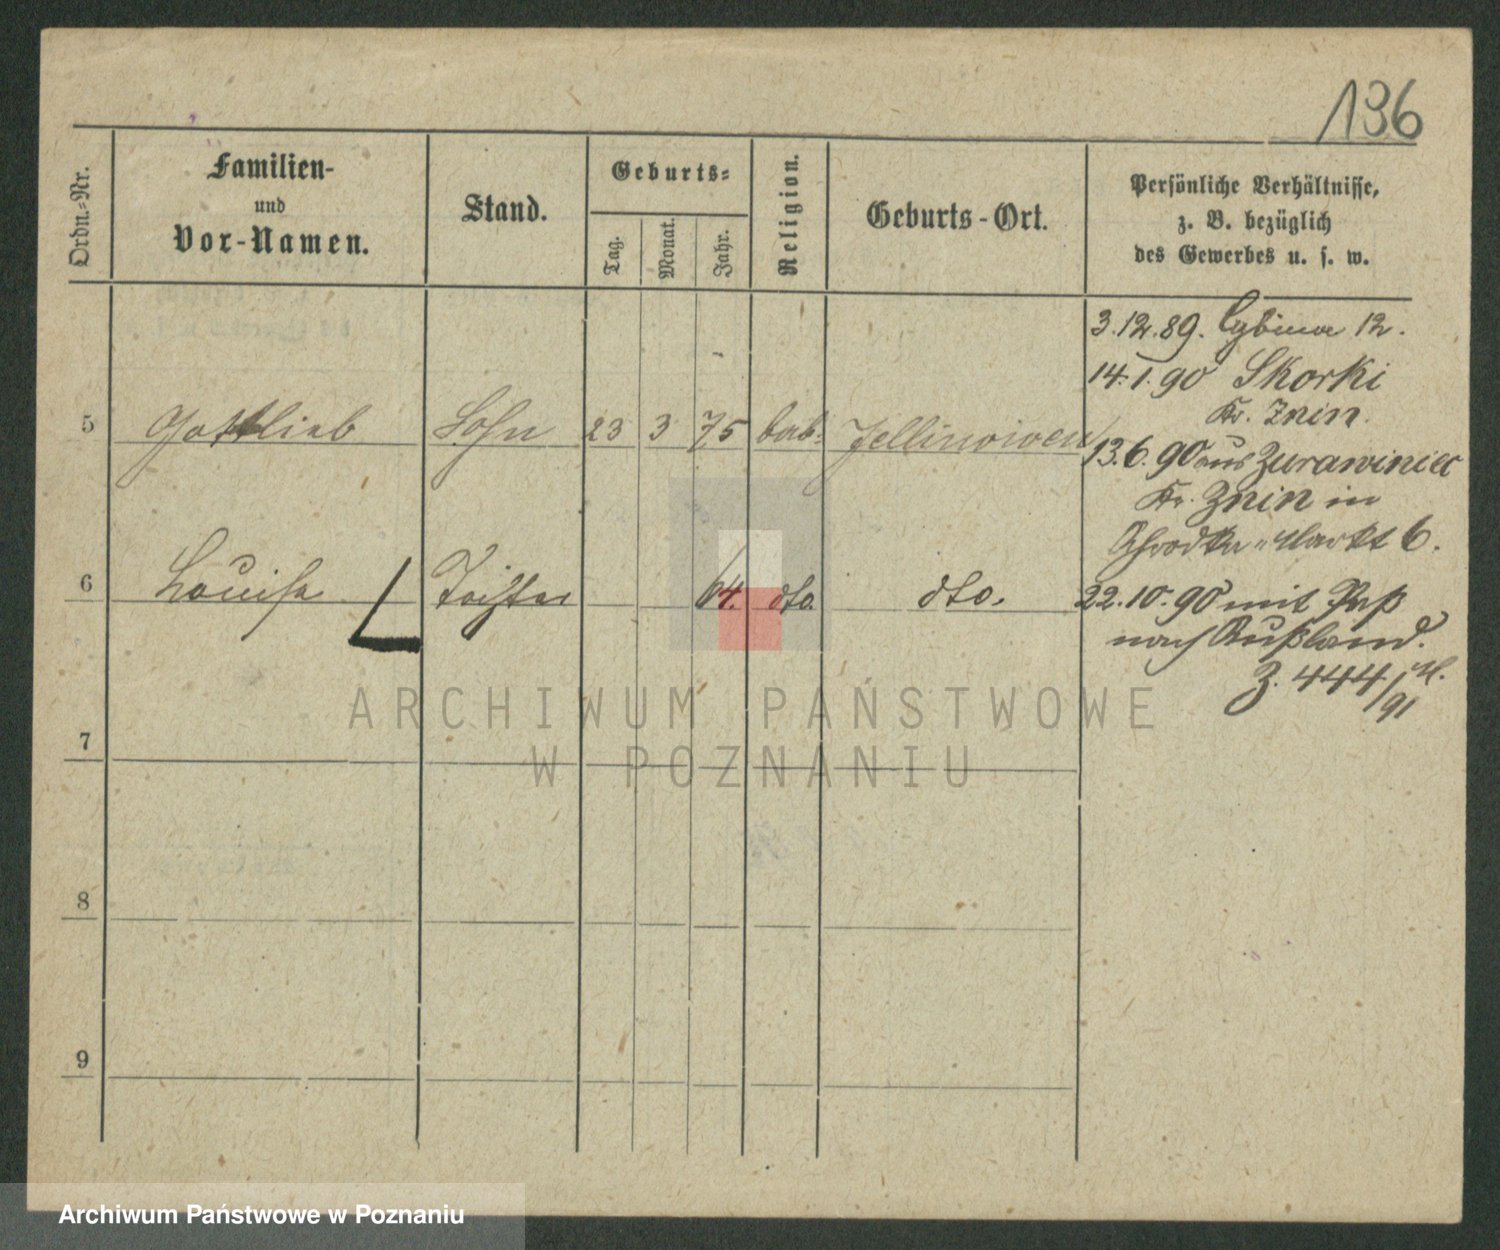 136
Ordn.-Nr.
Familien-
und
Vor-Namen.
Stand.
Geburts-
Tag.
Monat.
Jahr.
Religion.
Geburts-Ort.
Persönliche Verhältnisse,
z. B. bezüglich
des Gewerbes u. s. w.
3.12.89. Cybina 12.
14.1.90 Skorki
Kr. Znin.
5 Gottlieb Sohn 23 3 75 Jellinowen
13.6.90 aus Zurawiniec
Kr. Znin in
Markt 6.
6 Louise Tochter 64. dto. dto.
22.10.90 mit Paß
nach Rußland.
Z. 444/91
7
8
9
ARCHIWUM PAŃSTWOWE
W POZNANIU
Archiwum Państwowe w Poznaniu